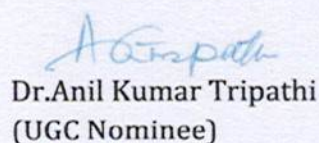 Dr.Anil Kumar Tripathi
(UGC Nominee)